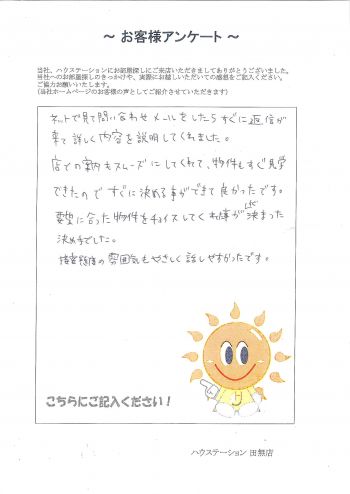 ～ お客様アンケート ～
当社、ハウステーションにお部屋探しにご来店いただきましてありがとうございました。
当社へのお部屋探しのきっかけや、実際にお越しいただいての感想をご記入ください。
ご協力お願いいたします。
(当社ホームページのお客様の声としてご紹介させていただきます)
ネットで見て問い合わせメールをしたらすぐに返信が
来て詳しく内容を説明してくれました。
店での案内もスムーズにしてくれて、物件もすぐ見学
できたので すぐに決める事ができて良かったです。
要望に合った物件をチョイスしてくれた事が決まった
決め手でした。
接客態度の雰囲気もやさしく話しやすかったです。
こちらにご記入ください！
ハウステーション 田無店